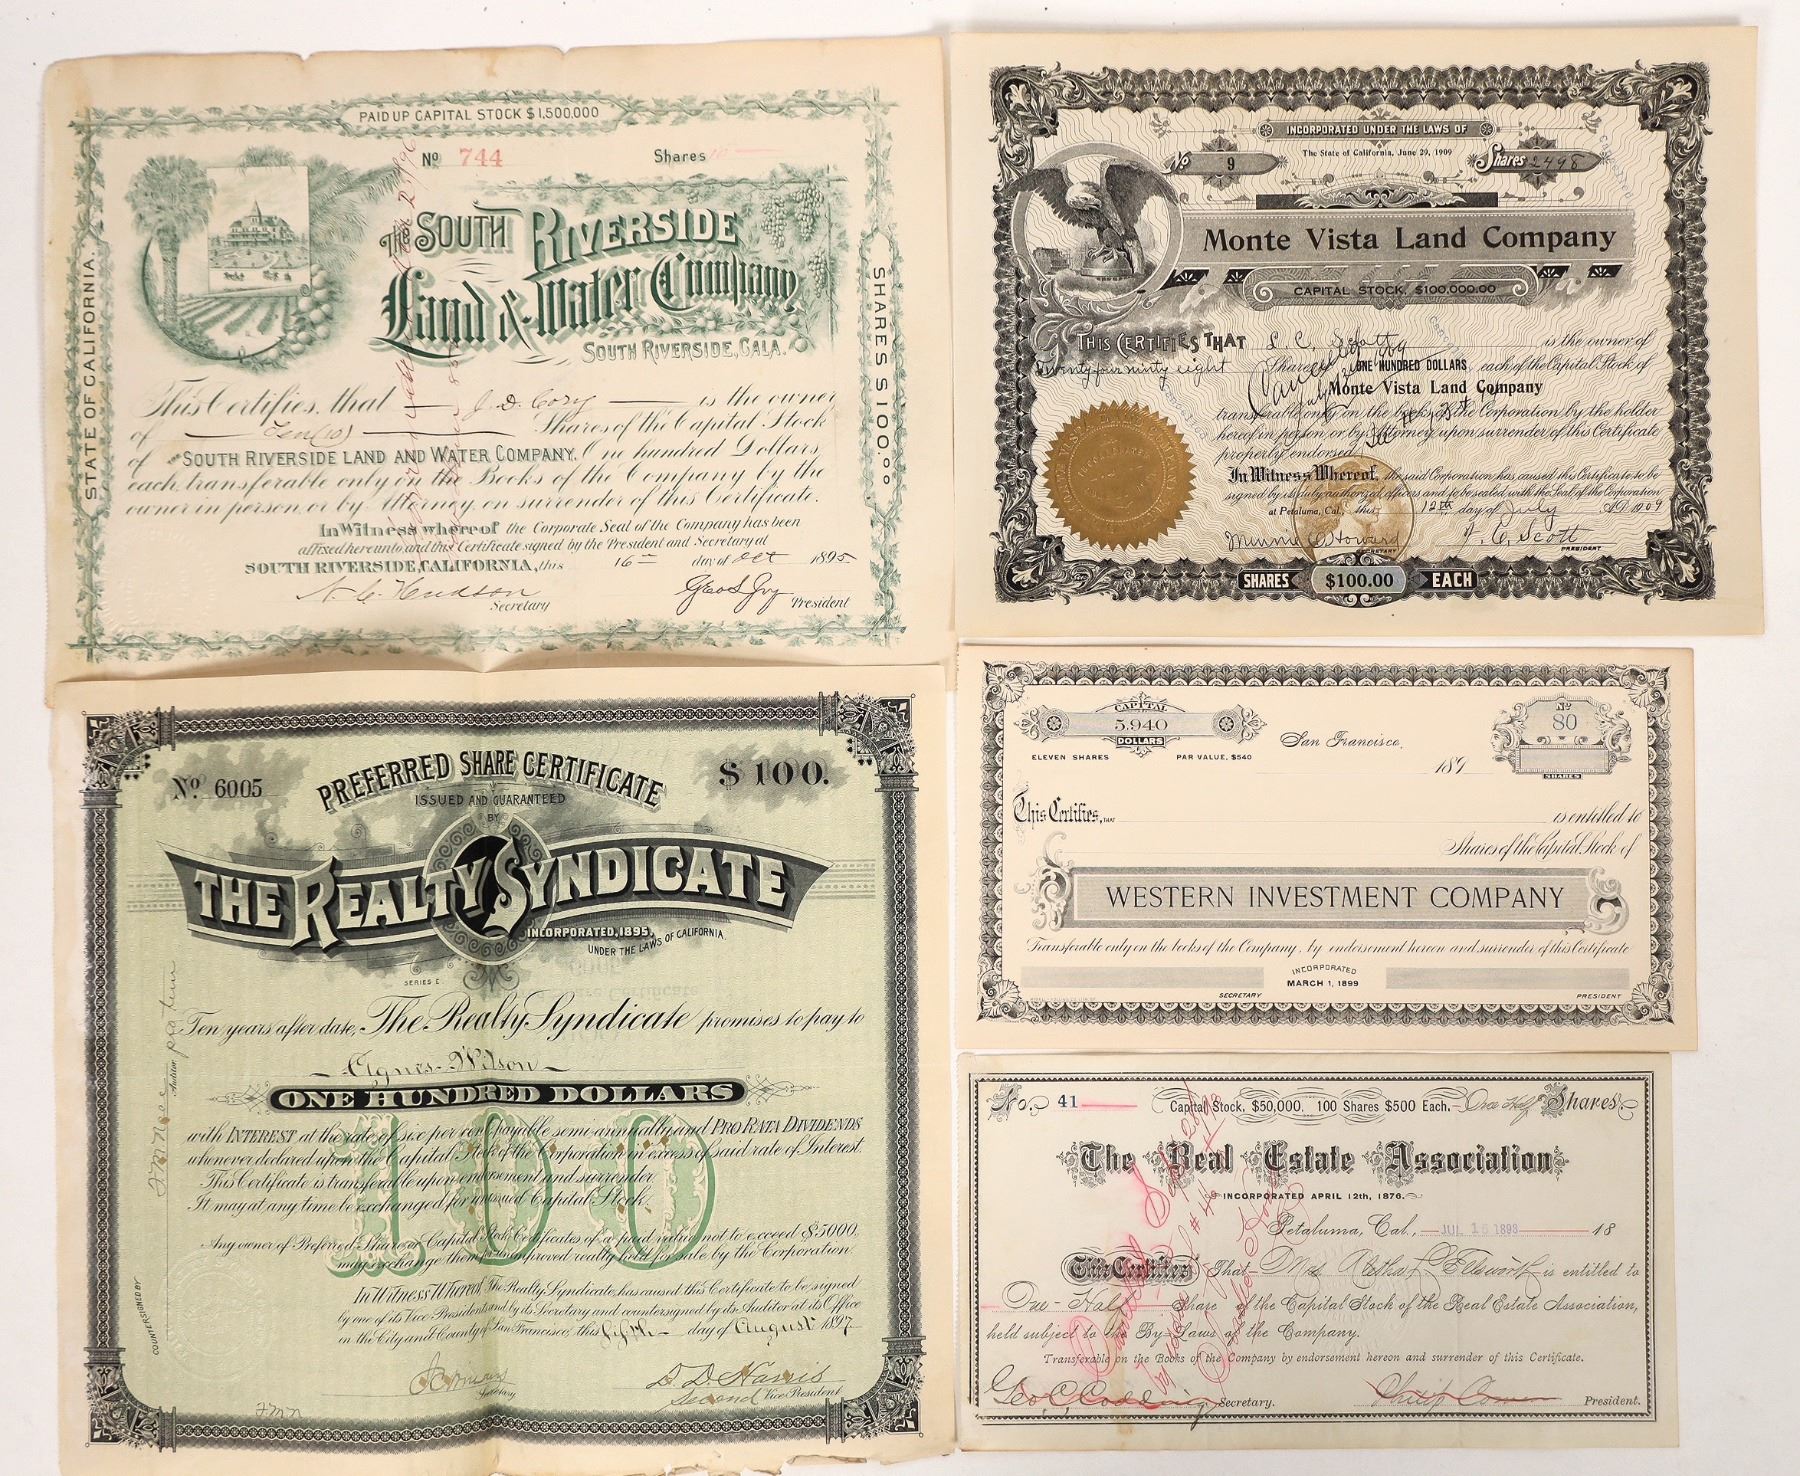 PAID UP CAPITAL STOCK $1,500.000
STATE OF CALIFORNIA.
SHARES $100.00
No 744
Shares 10
The South Riverside
Land & Water Company
South Riverside, Cala.
This Certifies, that J. D. Cory is the owner
of Ten (10) Shares of the Capital Stock
of The SOUTH RIVERSIDE LAND AND WATER COMPANY, One hundred Dollars,
each, transferable only on the Books of the Company by the
owner in person, or by Attorney on surrender of this Certificate.
In Witness whereof the Corporate Seal of the Company has been
affixed hereunto and this Certificate signed by the President and Secretary at
SOUTH RIVERSIDE, CALIFORNIA, this 16 day of Oct 1895
N. C. Hudson
Secretary
President
INCORPORATED UNDER THE LAWS OF
The State of California, June 29, 1909
No 9
Shares 2498
Monte Vista Land Company
CAPITAL STOCK, $100,000.00
THIS CERTIFIES THAT is the owner of
Twenty four ninety eight Shares of ONE HUNDRED DOLLARS each of the Capital Stock of
Monte Vista Land Company
transferable only on the books of the Corporation by the holder
hereof in person, or by Attorney, upon surrender of this Certificate
properly endorsed.
In Witness Whereof, the said Corporation has caused this Certificate to be
signed by its duly authorized officers and to be sealed with the Seal of the Corporation
at Petaluma, Cal., this 12th day of July A.D. 1909
Minnie C Howard
SECRETARY
J. C. Scott
PRESIDENT
SHARES $100.00 EACH
No. 6005
PREFERRED SHARE CERTIFICATE
$100.
ISSUED AND GUARANTEED
BY
THE REALTY SYNDICATE
INCORPORATED, 1895,
UNDER THE LAWS OF CALIFORNIA.
SERIES E.
Ten years after date, The Realty Syndicate promises to pay to
Agnes Wilson
ONE HUNDRED DOLLARS
100
with INTEREST at the rate of six per cent, payable semi-annually and PRO RATA DIVIDENDS
whenever declared upon the Capital Stock of the Corporation in excess of said rate of Interest.
This Certificate is transferable upon endorsement and surrender.
It may at any time be exchanged for unissued Capital Stock.
Any owner of Preferred Share or Capital Stock Certificates of a paid value not to exceed $5000,
may exchange them for unimproved realty held for sale by the Corporation.
In Witness Whereof, The Realty Syndicate, has caused this Certificate to be signed
by one of its Vice Presidents and by its Secretary and countersigned by its Auditor at its Office
in the City and County of San Francisco, this fifth day of August 1897.
COUNTERSIGNED BY
Auditor
Secretary
D D Harris
Second Vice President
CAPITAL
5,940
DOLLARS
ELEVEN SHARES
PAR VALUE, $540
San Francisco, 189
No
80
SHARES
This Certifies, THAT is entitled to
Shares of the Capital Stock of
WESTERN INVESTMENT COMPANY
Transferable only on the books of the Company, by endorsement hereon and surrender of this Certificate
INCORPORATED
MARCH 1, 1899
SECRETARY
PRESIDENT
No. 41
Capital Stock, $50,000. 100 Shares $500 Each. One Half Shares
The Real Estate Association
INCORPORATED APRIL 12th, 1876.
Petaluma, Cal., JUL 15 1893 18
This Certifies That Mrs Ellsworth is entitled to
One-Half Share of the Capital Stock of the Real Estate Association,
held subject to the By-Laws of the Company.
Transferable on the Books of the Company by endorsement hereon and surrender of this Certificate.
Geo. C. Codding Secretary.
Philip Cowen President.